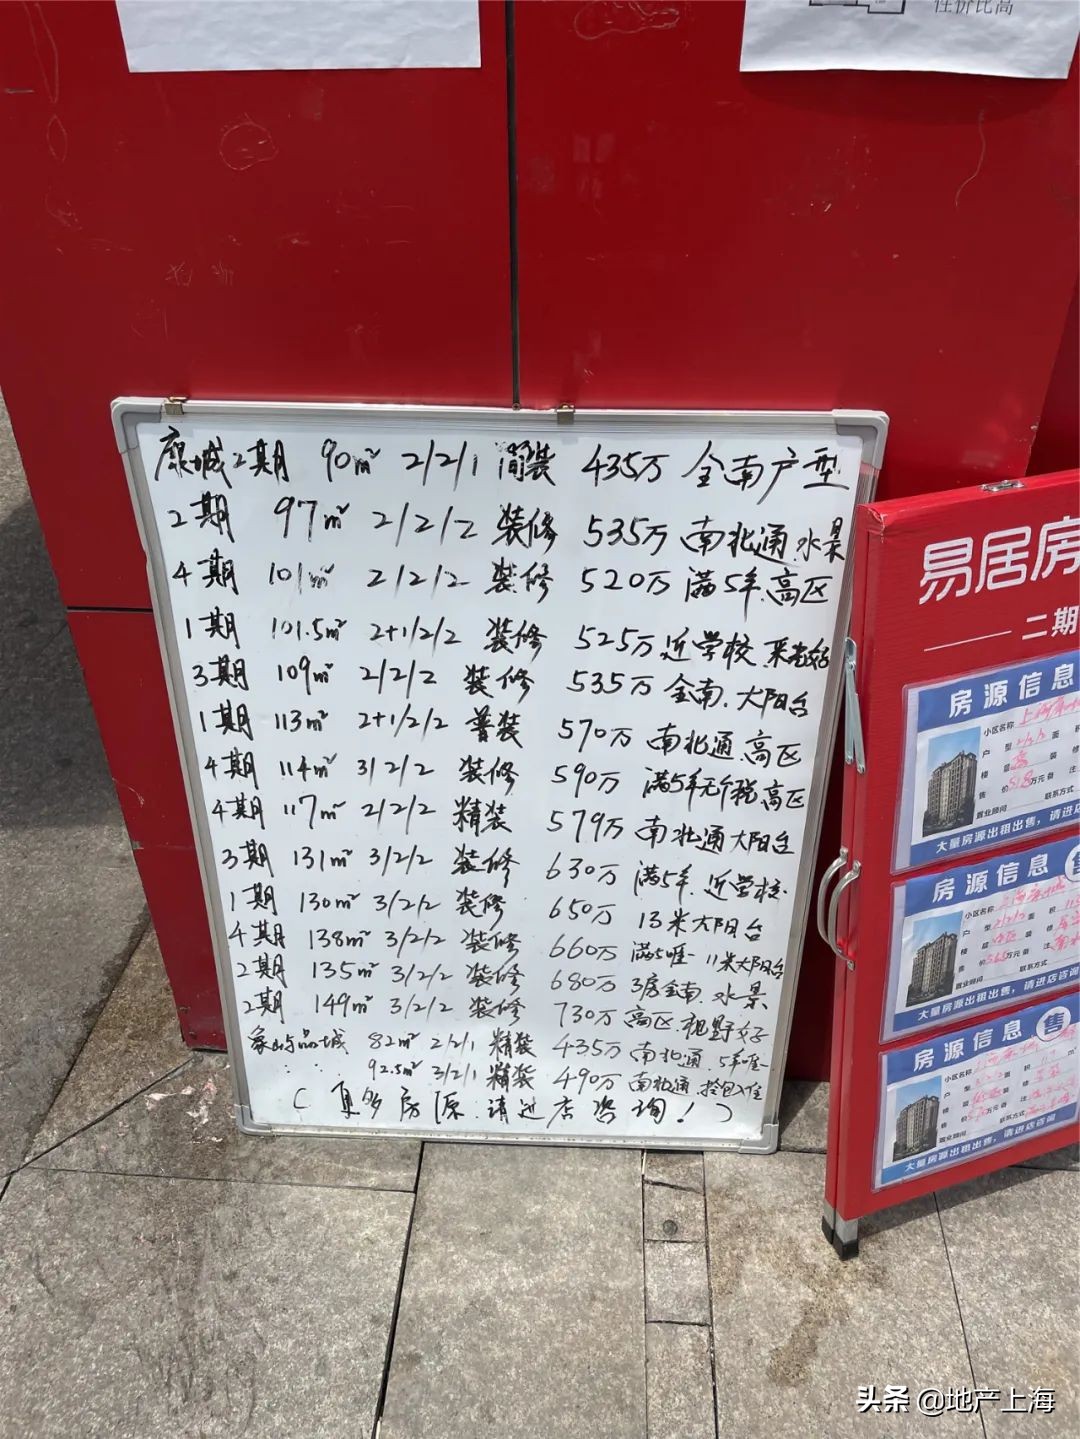 性价比高
康城2期 90m² 2/2/1 简装 435万 全南户型
2期 97m² 2/2/2 装修 535万 南北通.水景
4期 101m² 2/2/2 装修 520万 满5年.高区
1期 101.5m² 2+1/2/2 装修 525万 近学校 采光好
3期 109m² 2/2/2 装修 535万 全南.大阳台
1期 113m² 2+1/2/2 普装 570万 南北通.高区
4期 114m² 3/2/2 装修 590万 满5年无个税高区
4期 117m² 2/2/2 精装 579万 南北通大阳台
3期 131m² 3/2/2 装修 630万 满5年.近学校
1期 130m² 3/2/2 装修 650万 13米大阳台
4期 138m² 3/2/2 装修 660万 满5唯一 11米大阳台
2期 135m² 3/2/2 装修 680万 3房全南.水景
2期 149m² 3/2/2 装修 730万 高区.视野好
象屿品城 82m² 2/2/1 精装 435万 南北通.5年唯一
92.5m² 3/2/1 精装 490万 南北通.拎包入住
(更多房源.请进店咨询!)
易居房
二期
房源信息
小区名称
户型 2/2/2 面积
楼层 高 装修
售价 518万元
置业顾问 联系方式
大量房源出租出售，请进店
房源信息 售
小区名称 面积
户型 2/2/2
楼层 装修
售价 565万元
置业顾问 联系方式
大量房源出租出售，请进店咨询
房源信息 售
小区名称
户型 面积
楼层 装修
售价 万元
置业顾问 联系方式
大量房源出租出售，请进店咨询
头条 @地产上海